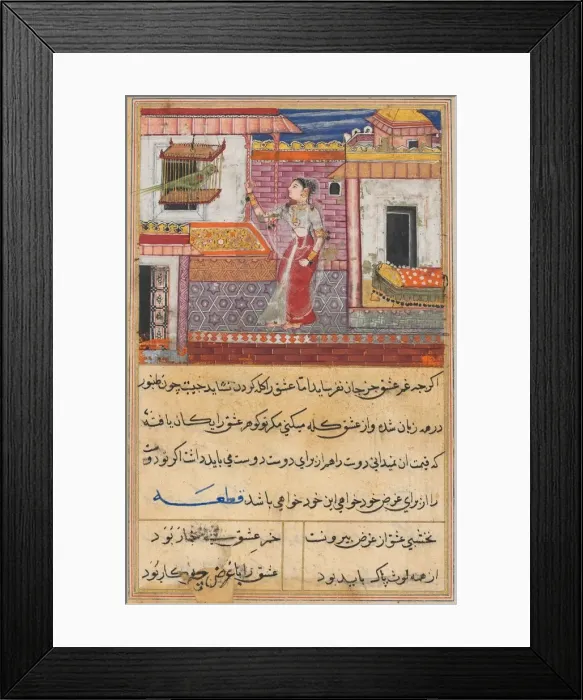 اگرچه غم عشق جز جان نفرساید اما عشق را کله کردن نشاید جیت چون طنبور
درهمه زبان شدهٔ و از عشق کله میکنی مکر تو کوهر عشق رایکان یافتهٔ
که قیمت آن نمیدانی دوست را هم از برای دوست دوست می باید داشت اکر تو دوست
را از برای غرض خود خواهی این خود خواهی باشد قطعه
نخشبی عشق از غرض بیرونست
عشق
بود
از همه لوث پاک باید بود
عشق را با غرض چه کار بود